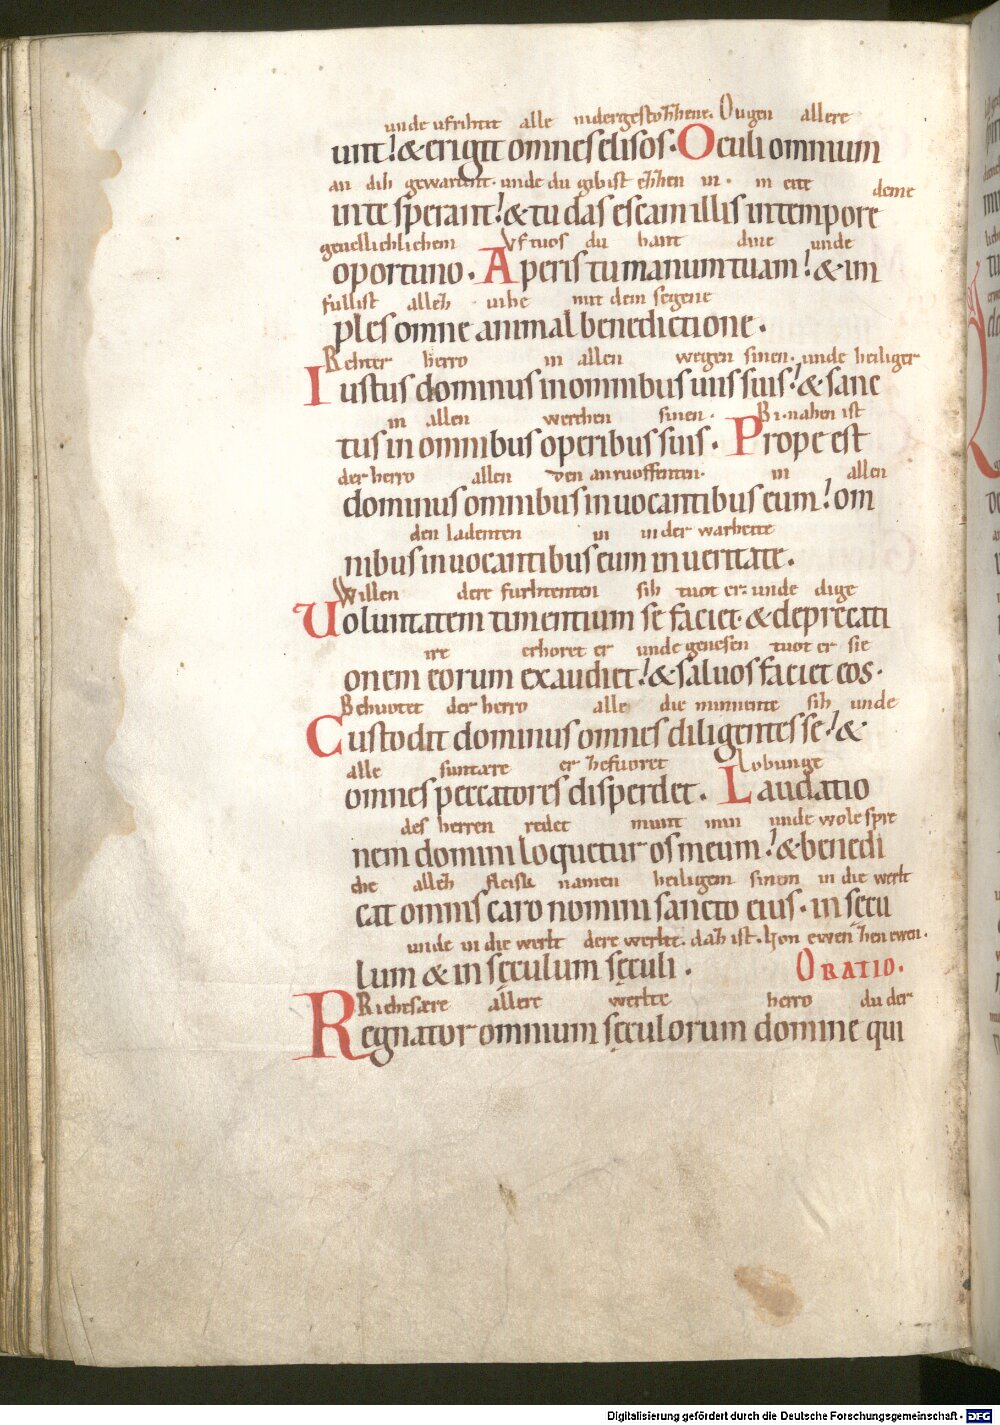 unde ufrihtit alle nidergestoẖẖene. Ougen allere
unt! & erigit omnes elisos. Oculi omnium
an dih gewartent. unde du gibist eẖẖen in. in cite deme
in te sperant! & tu das escam illis in tempore
geuellichlichem Vf tuos du hant dine unde
oportuno. Aperis tu manum tuam! & im
fullist alleẖ uihe mit dem segene
ples omne animal benedictione.
Rehter herro in allen wegen sinen. unde heiliger
Iustus dominus in omnibus uiis suis! & sanc
in allen werchen sinen. Bi nahen ist
tus in omnibus operibus suis. Prope est
der herro allen den anruoffenten. in allen
dominus omnibus inuocantibus eum! om
den ladenten in in der warheite
nibus inuocantibus eum in ueritate.
Willen dere furhtenten sih tuot er: unde dige
Voluntatem timentium se faciet. & deprecati
ire erhoret er unde genesen tuot er sie
onem eorum exaudiet! & saluos faciet eos.
Behuotet der herro alle die minnente sih unde
Custodit dominus omnes diligentes se! &
alle suntære er ẖefuoret Lobunge
omnes peccatores disperdet. Laudatio
des herren redet munt min unde wole spre
nem domini loquetur os meum! & benedi
che alleẖ fleisk namen heiligem sinem in die werlt
cat omnis caro nomini sancto eius. in sęcu
unde in die werlt dere werlte. daẖ ist. hon ewen ẖen ewen.
lum & in sęculum sęculi. ORATIO.
Rihtsære allere werlte herro du der
Regnator omnium sęculorum domine qui
Digitalisierung gefördert durch die Deutsche Forschungsgemeinschaft - DFG